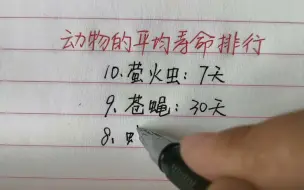 动物的平均寿命排行
10.萤火虫：7天
9.苍蝇：30天
8.